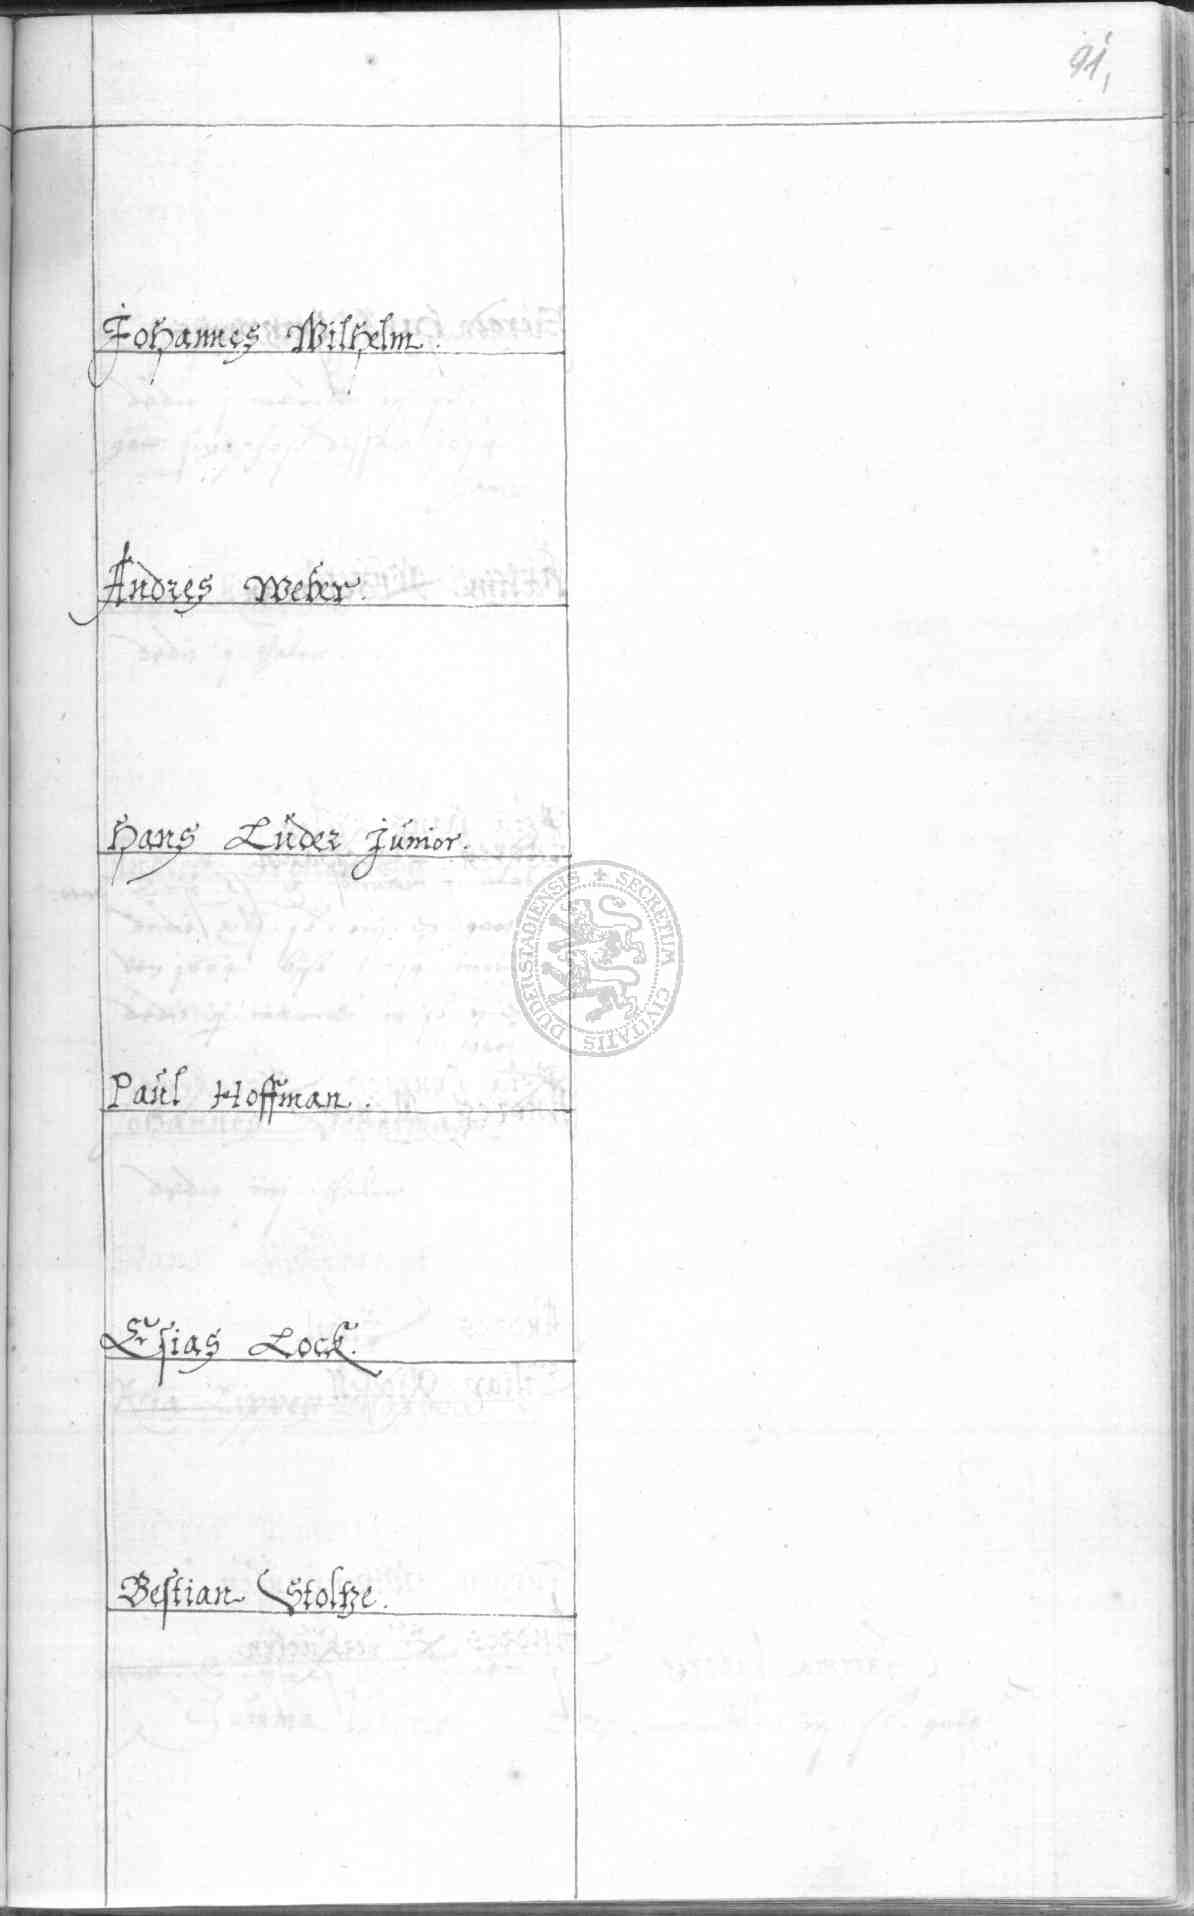 91
Johannes Wilhelm.
Andres Weber.
Hans Lüder Junior.
Paul Hoffman.
Esias Lock.
Bestian Stoltze.
SECRETUM CIVITATIS DUDERSTADIENSIS